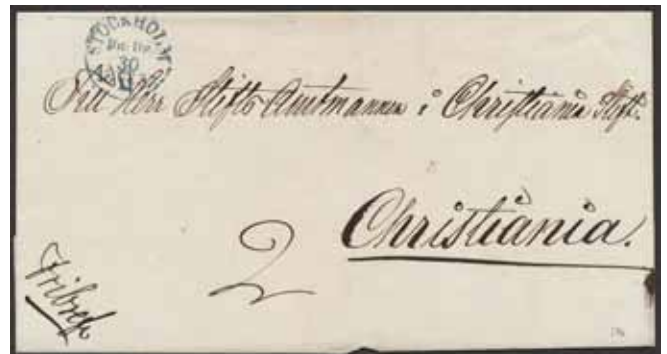 STOCKHOLM
30
Till Herr Stifts Amtmannen i Christiania Stift.
Christiania.
2
Fribref